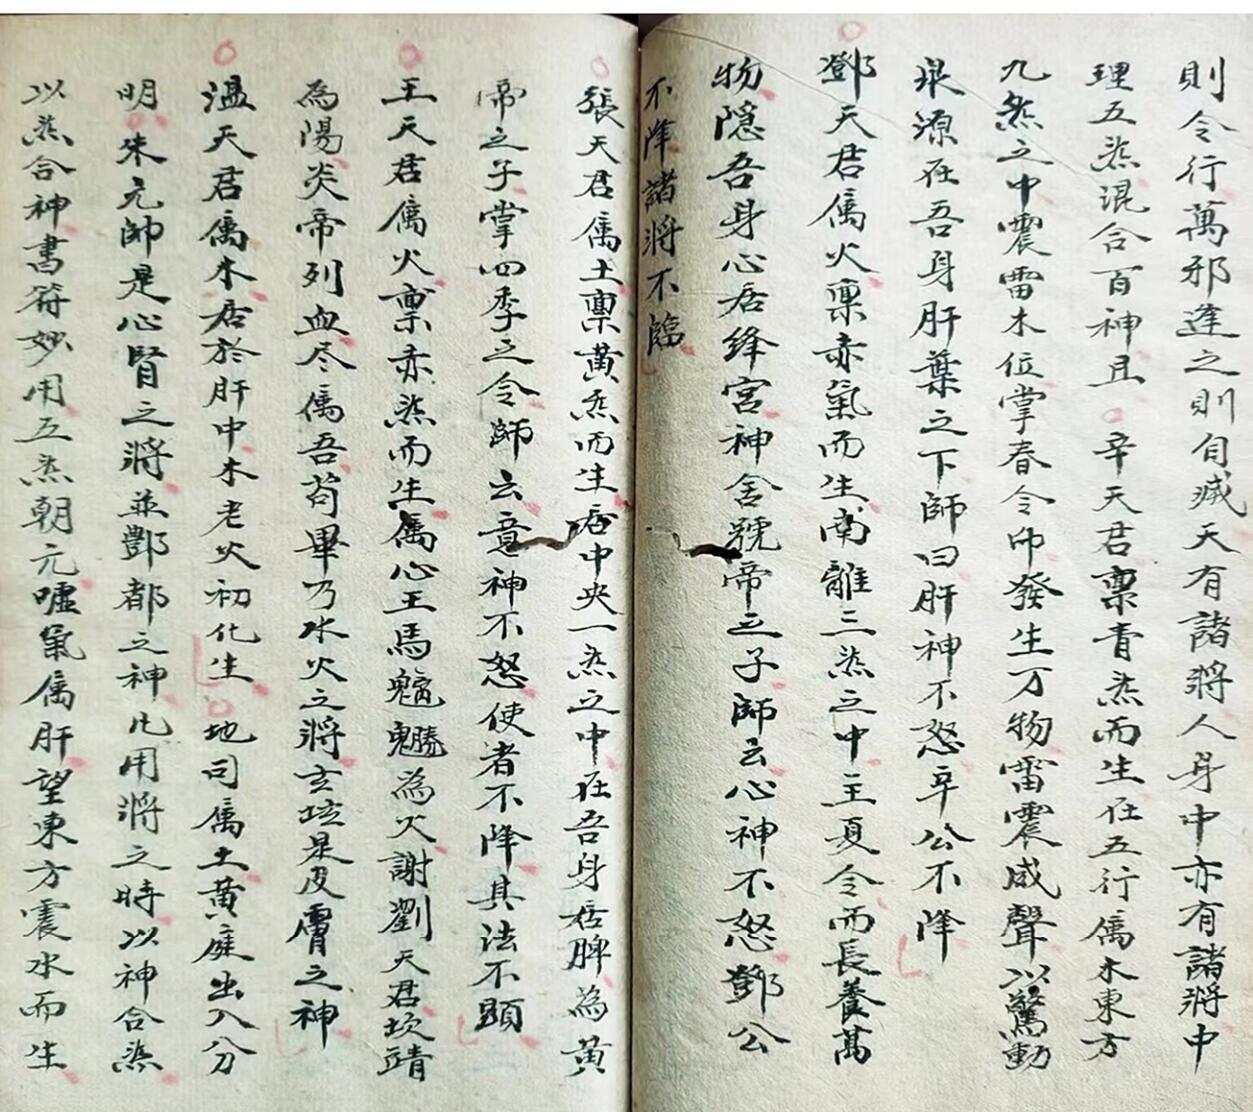 則令行萬邪逢之則自滅天有諸將人身中亦有諸將中
理五炁混合百神且○辛天君禀青炁而生在五行屬木東方
九炁之中震雷木位掌春令而發生万物雷震威聲以驚動
泉源在吾身肝葉之下師曰肝神不怒辛公不降
鄧天君屬火禀赤氣而生南離三炁之中主夏令而長養萬
物隐吾身心居絳宮神舍號帝之子師云心神不怒鄧公
不降諸將不臨
張天君屬土禀黃炁而生居中央一炁之中在吾身居脾為黃
帝之子掌四季之令師云意神不怒使者不降其法不顕
王天君屬火禀赤炁而生屬心王馬 為火謝劉天君坎靖
為陽炎帝列血尽屬吾苟畢乃水火之將玄坛是皮膚之神
溫天君屬木居於肝中木老火初化生○地司屬土黃庭出入分
明朱元帥是心腎之將並酆都之神凢用將之時以神合炁
以炁合神書符妙用五炁朝元嘘氣屬肝望東方震水而生